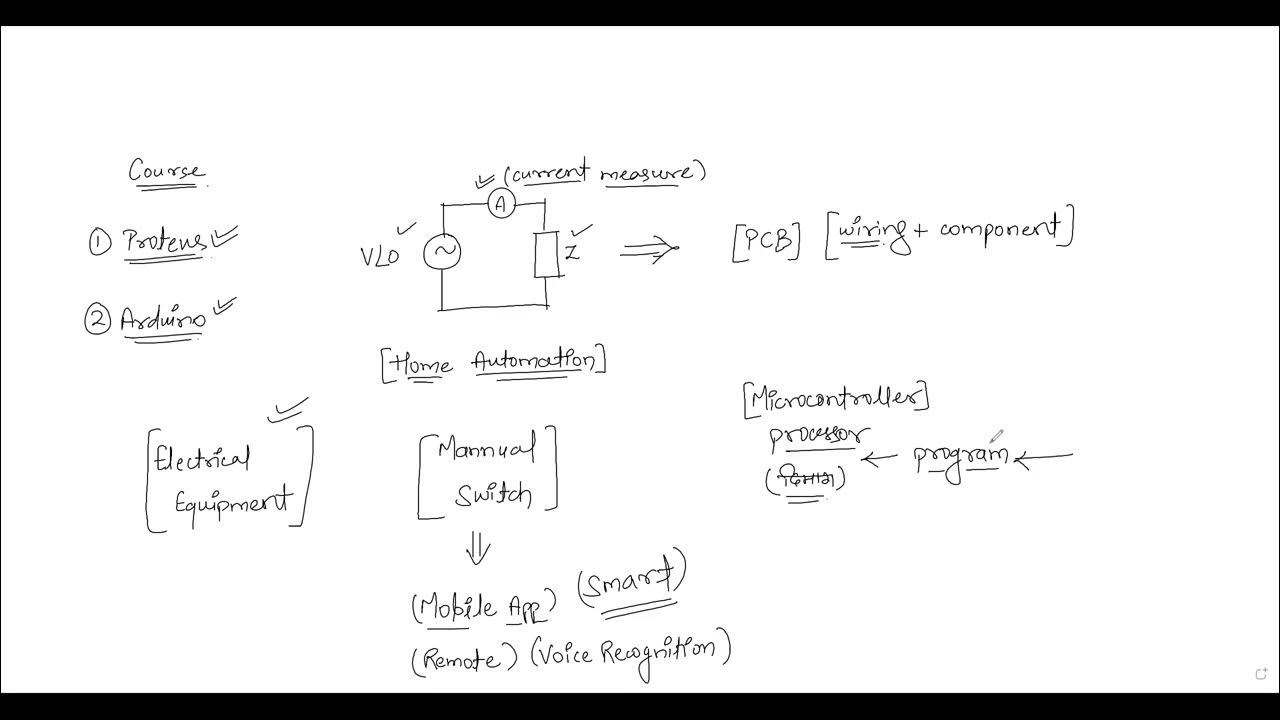 Course
① Proteus
② Arduino
(current measure)
A
V∠0
Z
[PCB] [wiring + component]
[Home Automation]
[Electrical
Equipment]
[Mannual
Switch]
(Mobile App) (Smart)
(Remote) (Voice Recognition)
[Microcontroller]
processor
(दिमाग)
program